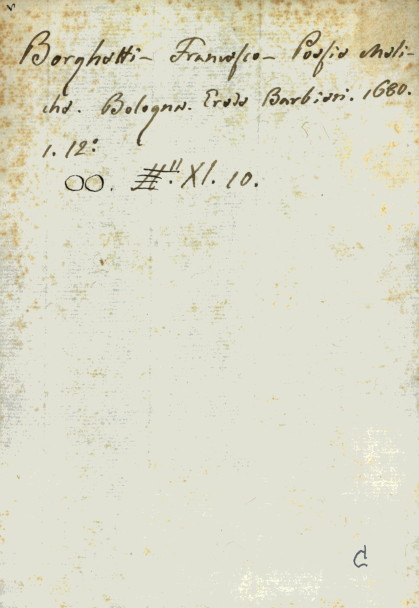 Borghetti - Francesco - Poesie Meli-
che. Bologna. Erede Barbieri. 1680.
1. 12.º
OO. XI. 10.
C